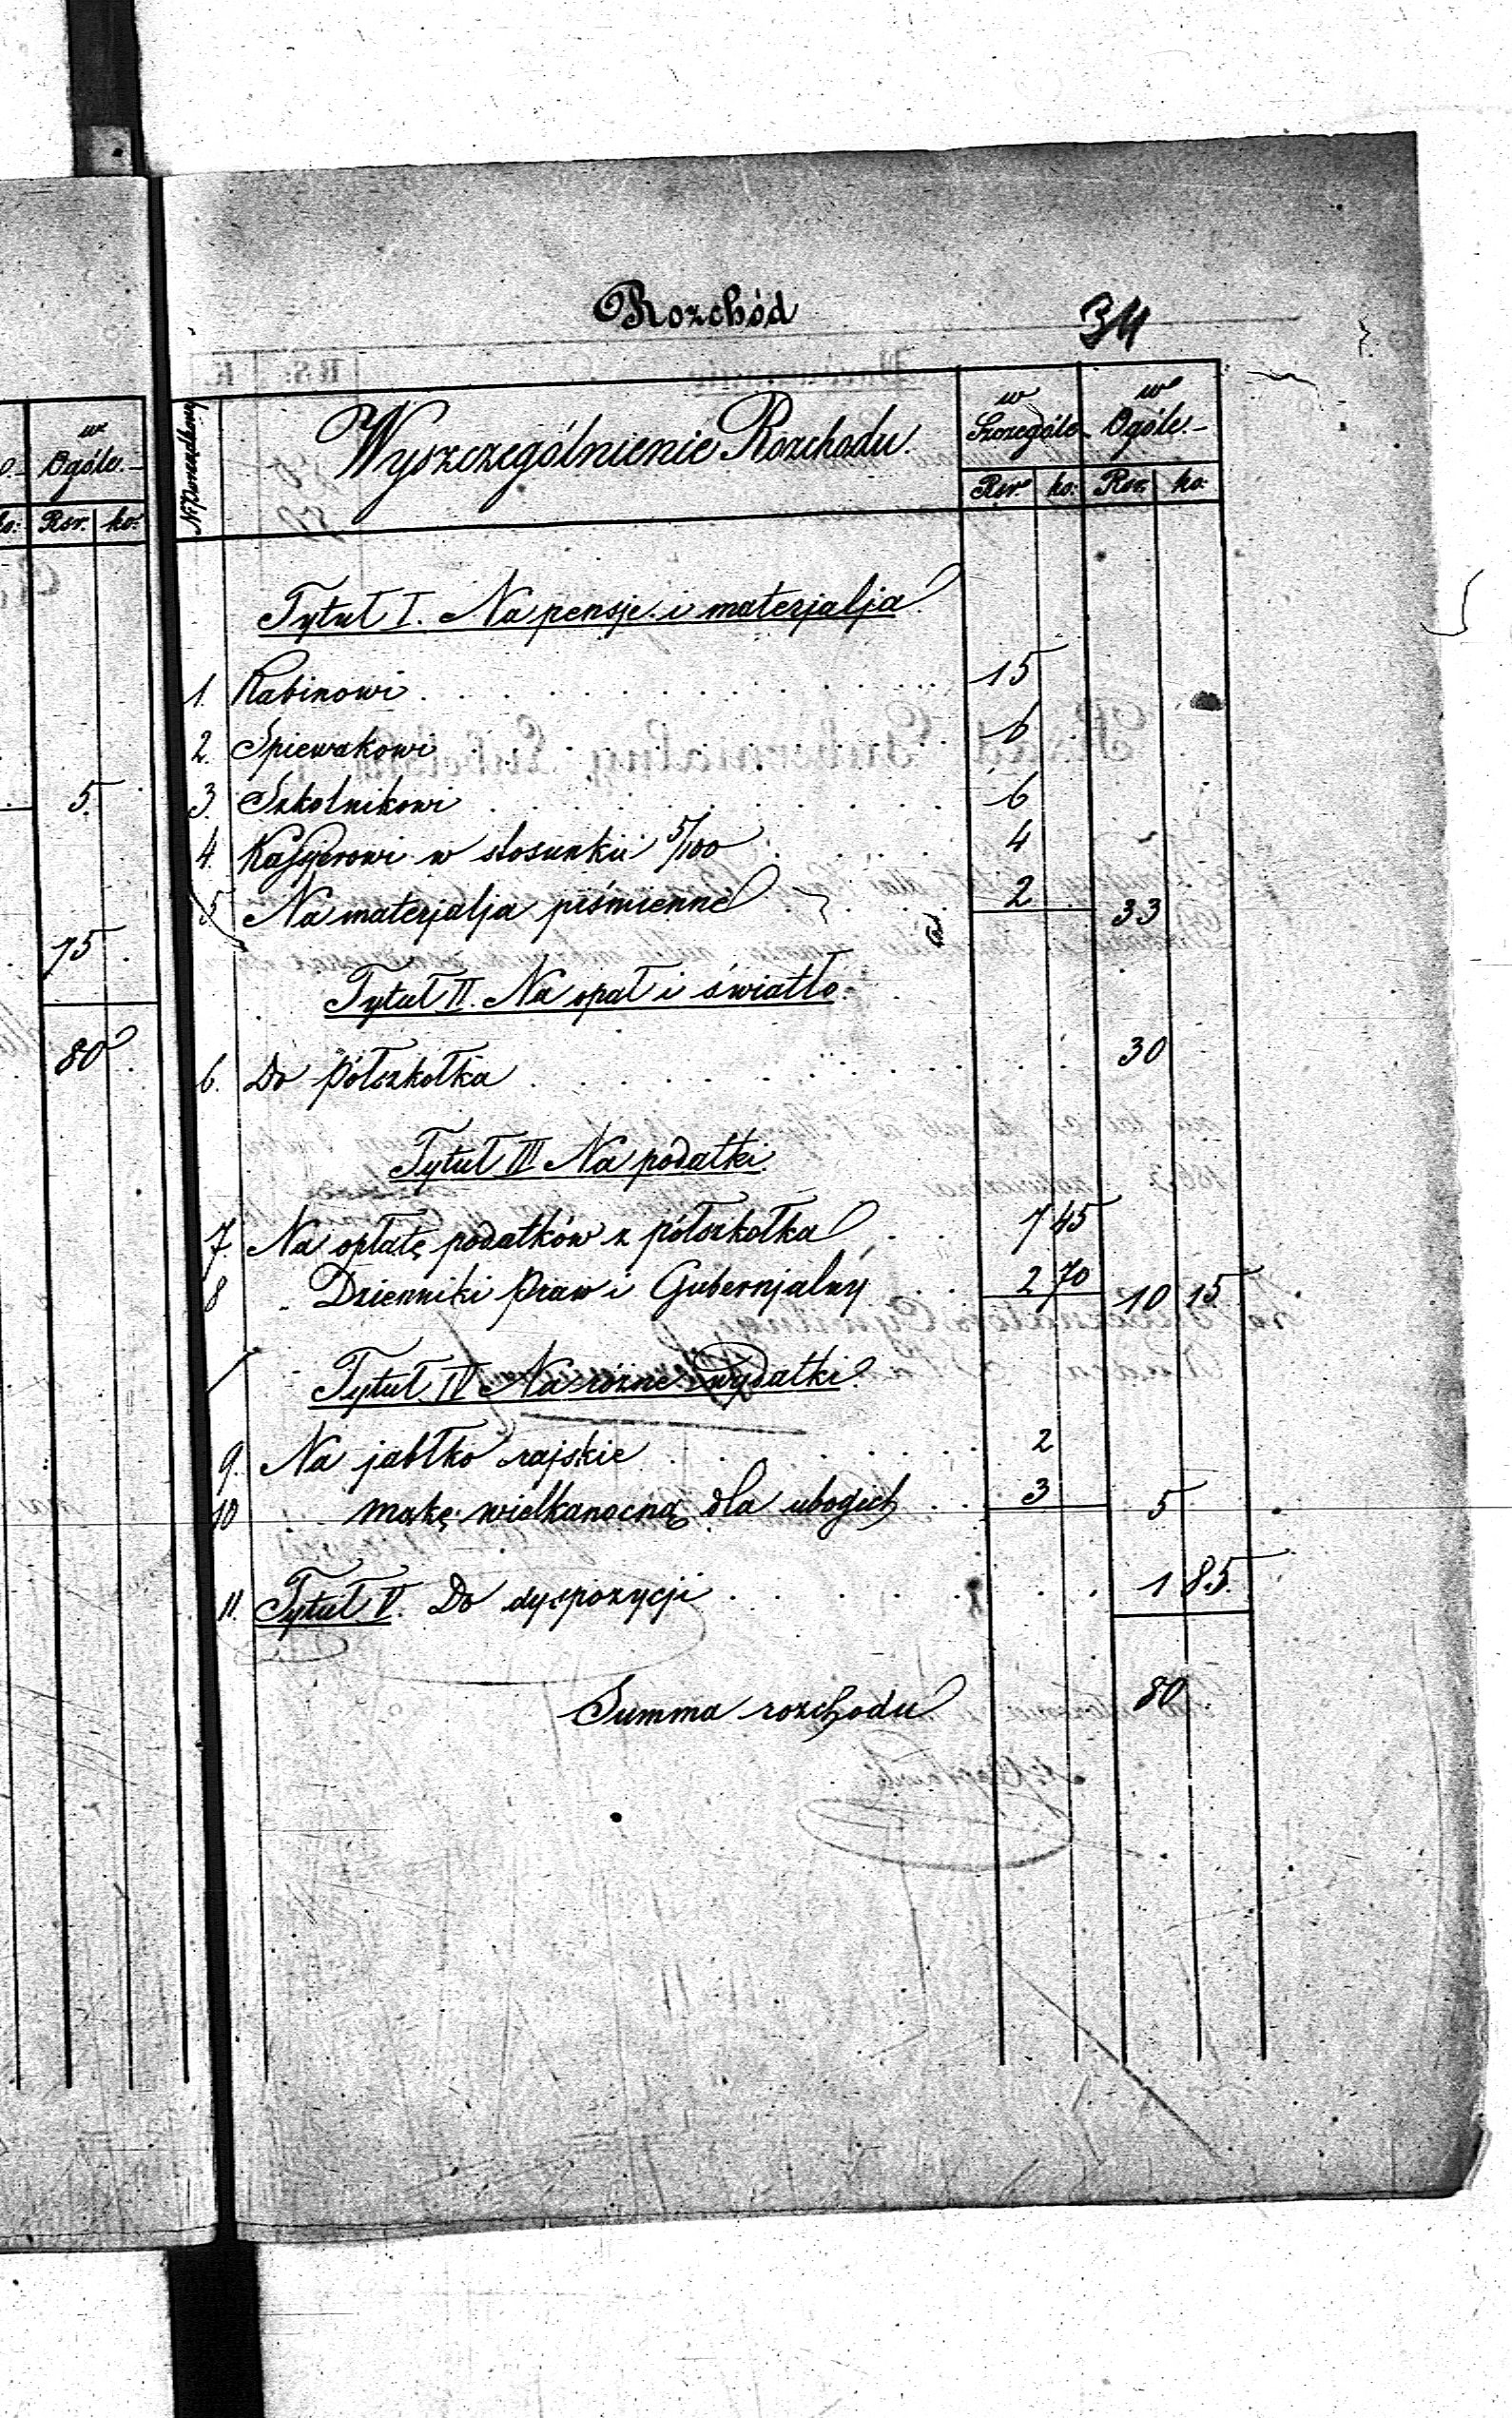 Rozchód
34
w
Ogóle
Rsr. ko:
5.
75
80
Nr Porządkowy
Wyszczególnienie Rozchodu.
w Szczególe
w Ogóle
Rsr. ko: Rsr. ko.
Tytuł I. Na pensje i materjalja
1. Rabinowi 15
2. Spiewakowi 6
3. Szkolnikowi 6
4. Kassyerowi w stosunku 5/100 4
5 Na materjalja piśmienne 2 33
Tytuł II. Na opał i światło
6. Do półszkołka 30
Tytuł III Na podatki
7. Na opłatę podatków z półszkołka 7 45
8 " Dzienniki Praw i Gubernjalny 2 70 10 15
Tytuł IV Na różne wydatki
9. Na jabłko rajskie 2
10 " mąkę wielkanocną dla ubogich 3 5
11. Tytuł V. Do dyspozycji 1 85
Summa rozchodu 80